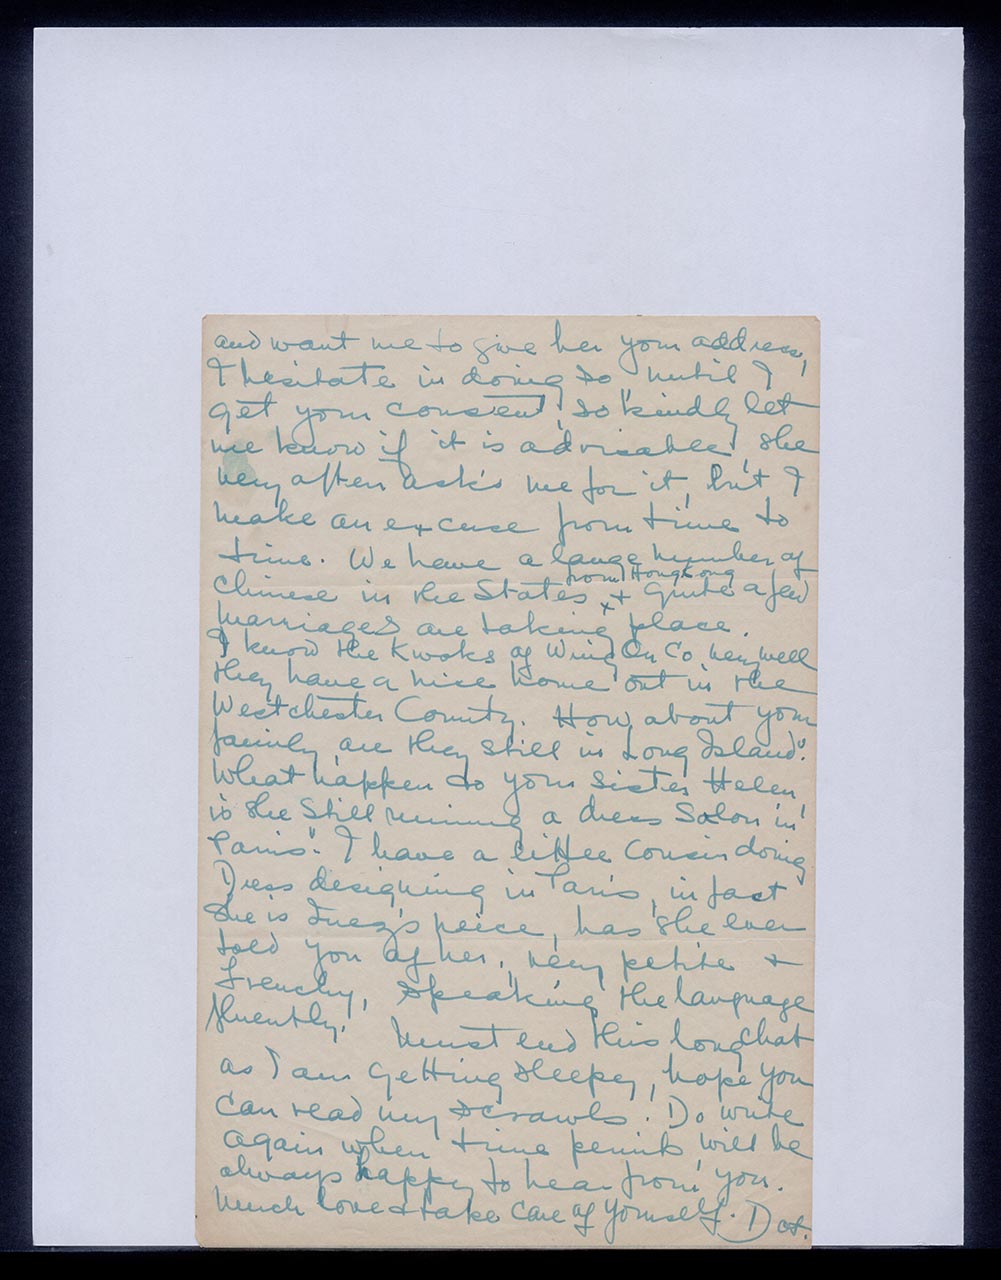 and want me to give her your address,
I hesitate in doing so, until I
get your consent, so kindly let
me know if it is advisable, she
very often ask's me for it, but I
make an excuse from time to
time. We have a large number of
Chinese in the States x from HongKong + quite a few
marriages are taking place.
I know the Kwoks of Wing On Co. very well
they have a nice home out in the
Westchester County. How about your
family are they still in Long Island?
What happen to your sister Helen
is she still running a dress Salon in
Paris". I have a little cousin doing
Dress designing in Paris, in fact
she is Inez's peice, has she ever
told you of her, very petite +
Frenchy, speaking the language
fluently. Must end this long chat
as I am getting sleepy, hope you
can read my scrawls. Do write
again when time permits will be
always happy to hear from you.
Much love & take care of yourself. Dot.